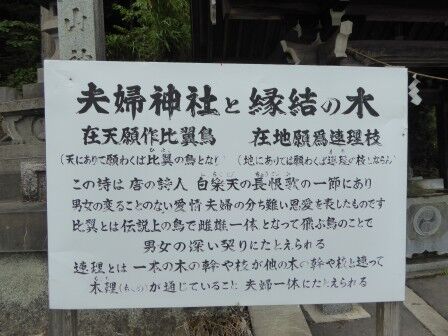 夫婦神社と縁結の木
在天願作比翼鳥 在地願爲連理枝
(天にありて願わくば比翼の鳥となり) (地にありては願わくば連理の枝とならん)
この詩は 唐の詩人 白楽天の長恨歌の一節にあり
男女の変ることのない愛情 夫婦の分ち難い恩愛を表したものです
比翼とは伝説上の鳥で雌雄一体となって飛ぶ鳥のことで
男女の深い契りにたとえられる
連理とは 一本の木の幹や枝が他の木の幹や枝と連って
木理(もくり)が通じていること 夫婦一体にたとえられる